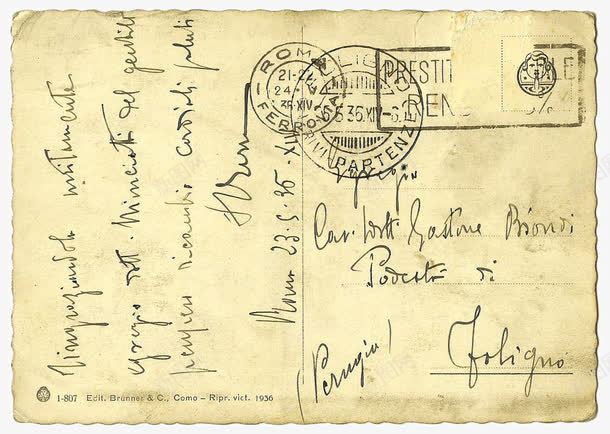 Ringraziandola unitamente
egregio dott. Minciotti del gentile
pensiero ricambio cordiali saluti
Roma 23.5.36.XIV
ROMA
21-22
24
36.XIV
FERROVIA
ARRIVI PARTENZE
PRESTIT
REN
Egregio
Cav. Dott. Gastone Biondi
Podestà di
Foligno
(Perugia)
1-807 Edit. Brunner & C., Como – Ripr. viet. 1936